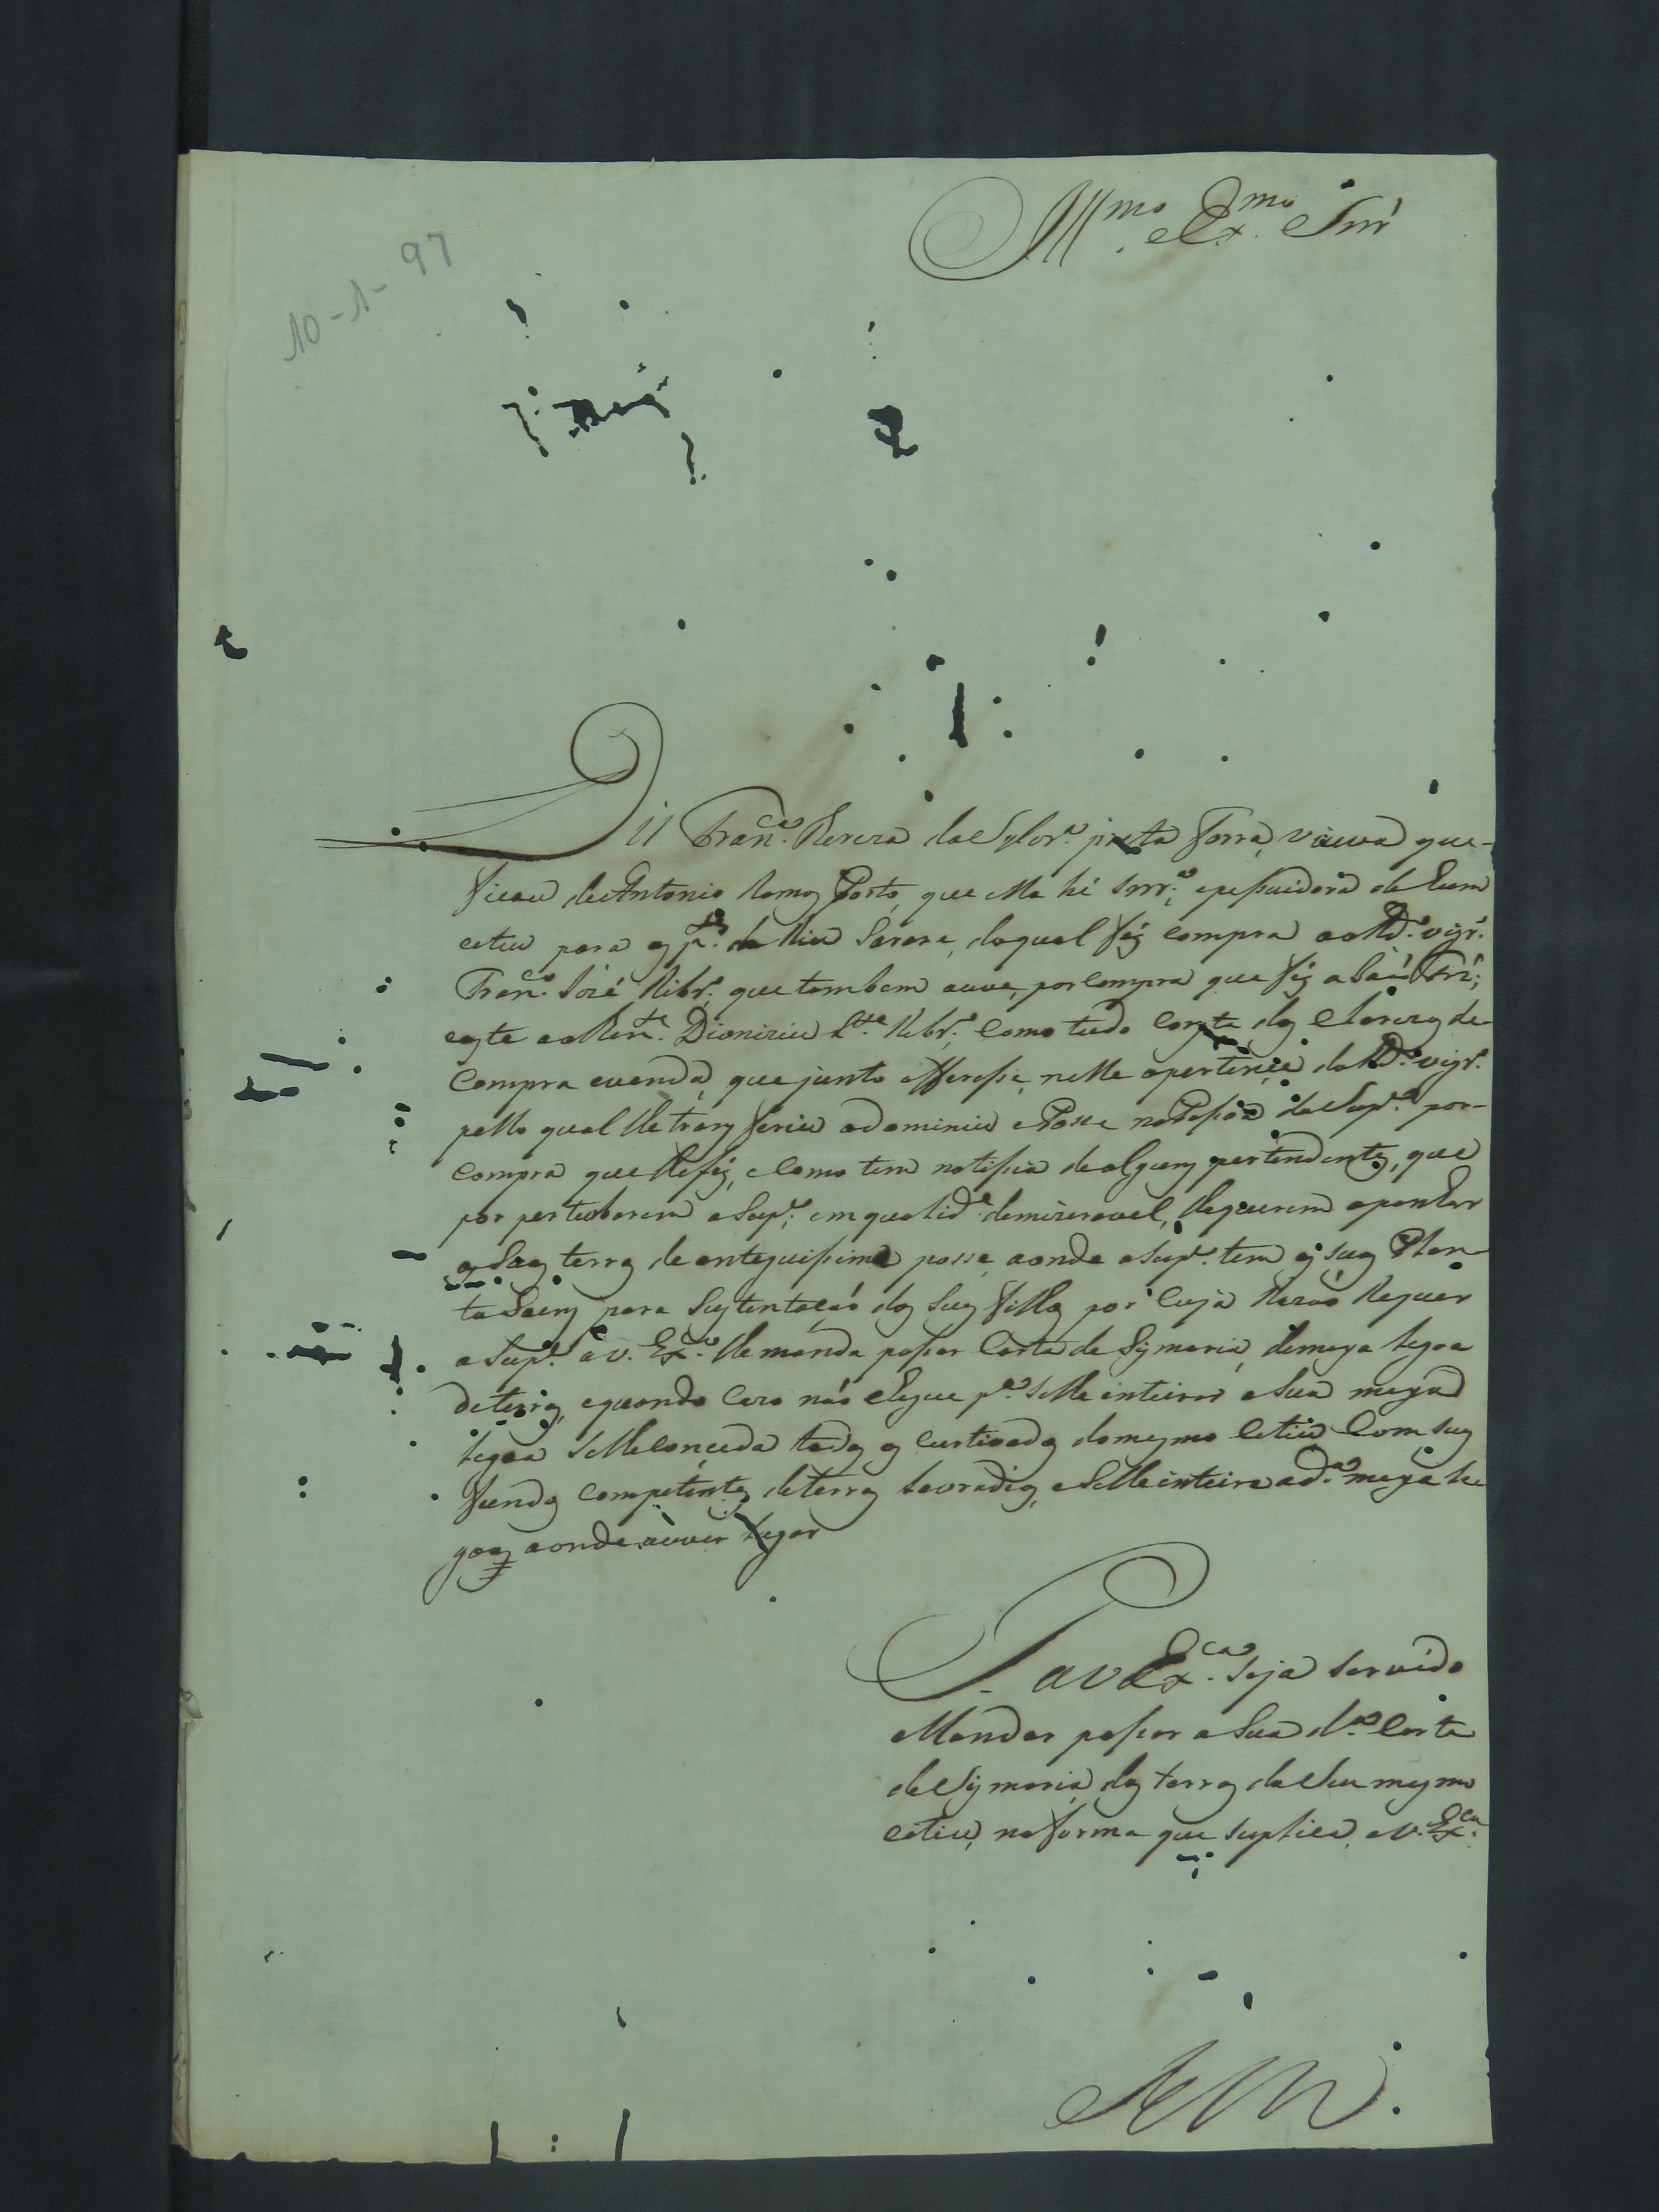 Illmo. e Exmo. Snr
10-1-97
Diz Franca. Pereira da Sylva. preta forra, viuva que-
ficou de Antonio Ramos Porto, que ella hé Snra., e pessuidora de hum
citio para as do Rio daqual fés compra ao Rdo. vigro.
Franco. José Ribro. que tambem ouve, por compra que fés a
este ao Dionizio Ribro. como tudo consta dos de
compra evenda, que junto offeresse, nelle apertençe do Rdo. vigro.
pello qual lhe transferiu o dominio e Posse na Pessoa da Supe. por-
compra que lhe fés, e como tem notissia de alguns pertendentes, que
por perturbarem a Supe. em qualide. demizeravel, Requerem
terras de antequissima posse, aonde a Supe. tem as suas Plan
tasoens para Sustentasáo dos Seus filhos por cuja Razáo Requer
a Supe. a V. Exa. lhe manda passar Carta de Sismaria, demeya legoa
de terras, equando cazo náo chegue pa. selle inteirar a Sua meya
legoa selle conceda todos os cultivados do mesmo citio com seus
fundos competentes de terras lavradias, e selle inteire a da. meya le
goas aonde ouver lugar
P. a V Exca. Seja servido
Mandar passar a Sua da. Carta
de Sismaria, das terras do Seu mesmo
citio, na forma que suplica, a V. Exca.
E R M.